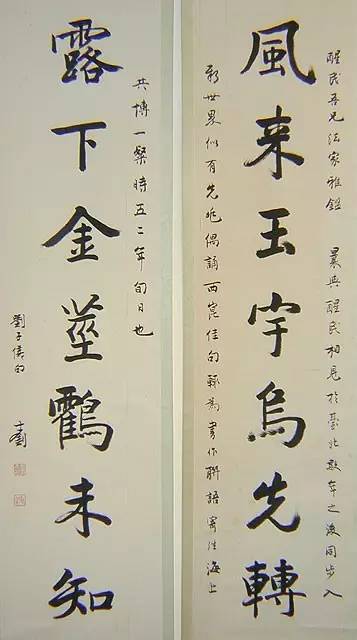 醒民吾兄法家雅鑑 曩與醒民相見於臺北數年之後同步入
風来玉宇烏先轉
新世界似有先兆偶誦西崑佳句輒為書作聯語寄往海上
共博一粲時五二年旬日也
露下金莖鸖未知